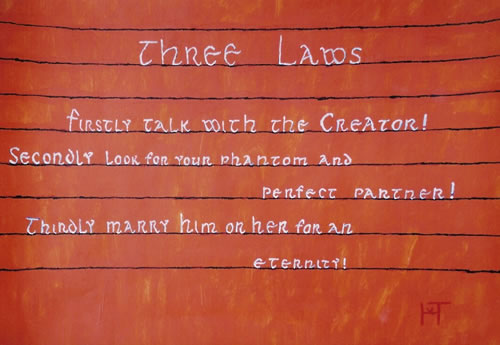 Three Laws
Firstly talk with the Creator!
Secondly look for your phantom and
perfect partner!
Thirdly marry him or her for an
eternity!
HT